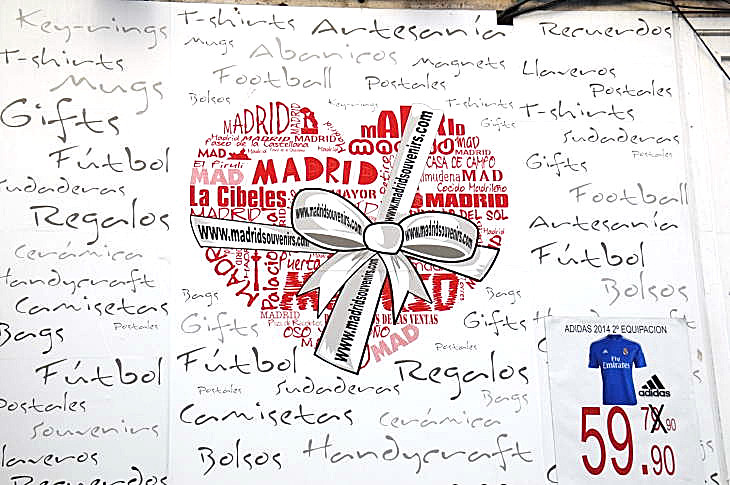 Key-rings
T-shirts
Mugs
Gifts
Fútbol
Sudaderas
Regalos
Cerámica
Handycraft
Camisetas
Bags
Postales
Fútbol
Postales
Souvenirs
Llaveros
Bags
T-shirts Artesanía
Mugs Abanicos Magnets
Football Postales
Bolsos Key-rings T-shirts
Gifts
MADRID
MADRID
MADRID MADRID MADRID
Paseo de la Castellana
MAD
El Pirulí
MAD MADRID
La Cibeles MAYOR
MADRID
MAD
Palacio
Puerta
MADRID
OSO
MADRID
mad
MADRID
CASA DE CAMPO
Almudena MAD
Cocido Madrileño
MADRID
DEL SOL
DE LAS VENTAS
MAD
www.madridsouvenirs.com
www.madridsouvenirs.com
www.madridsouvenirs.com
www.madridsouvenirs.com
www.madridsouvenirs.com
Bags Bags
Gifts Gifts
Postales
Fútbol Regalos
Postales Sudaderas Bags
Camisetas Cerámica
Bolsos Handycraft
Recuerdos
Llaveros
Postales
T-shirts
Sudaderas
Postales
Gifts
Football
Artesanía
Fútbol
Bolsos
Bags
ADIDAS 2014 2º EQUIPACION
Fly
Emirates
adidas
79.90
59.90